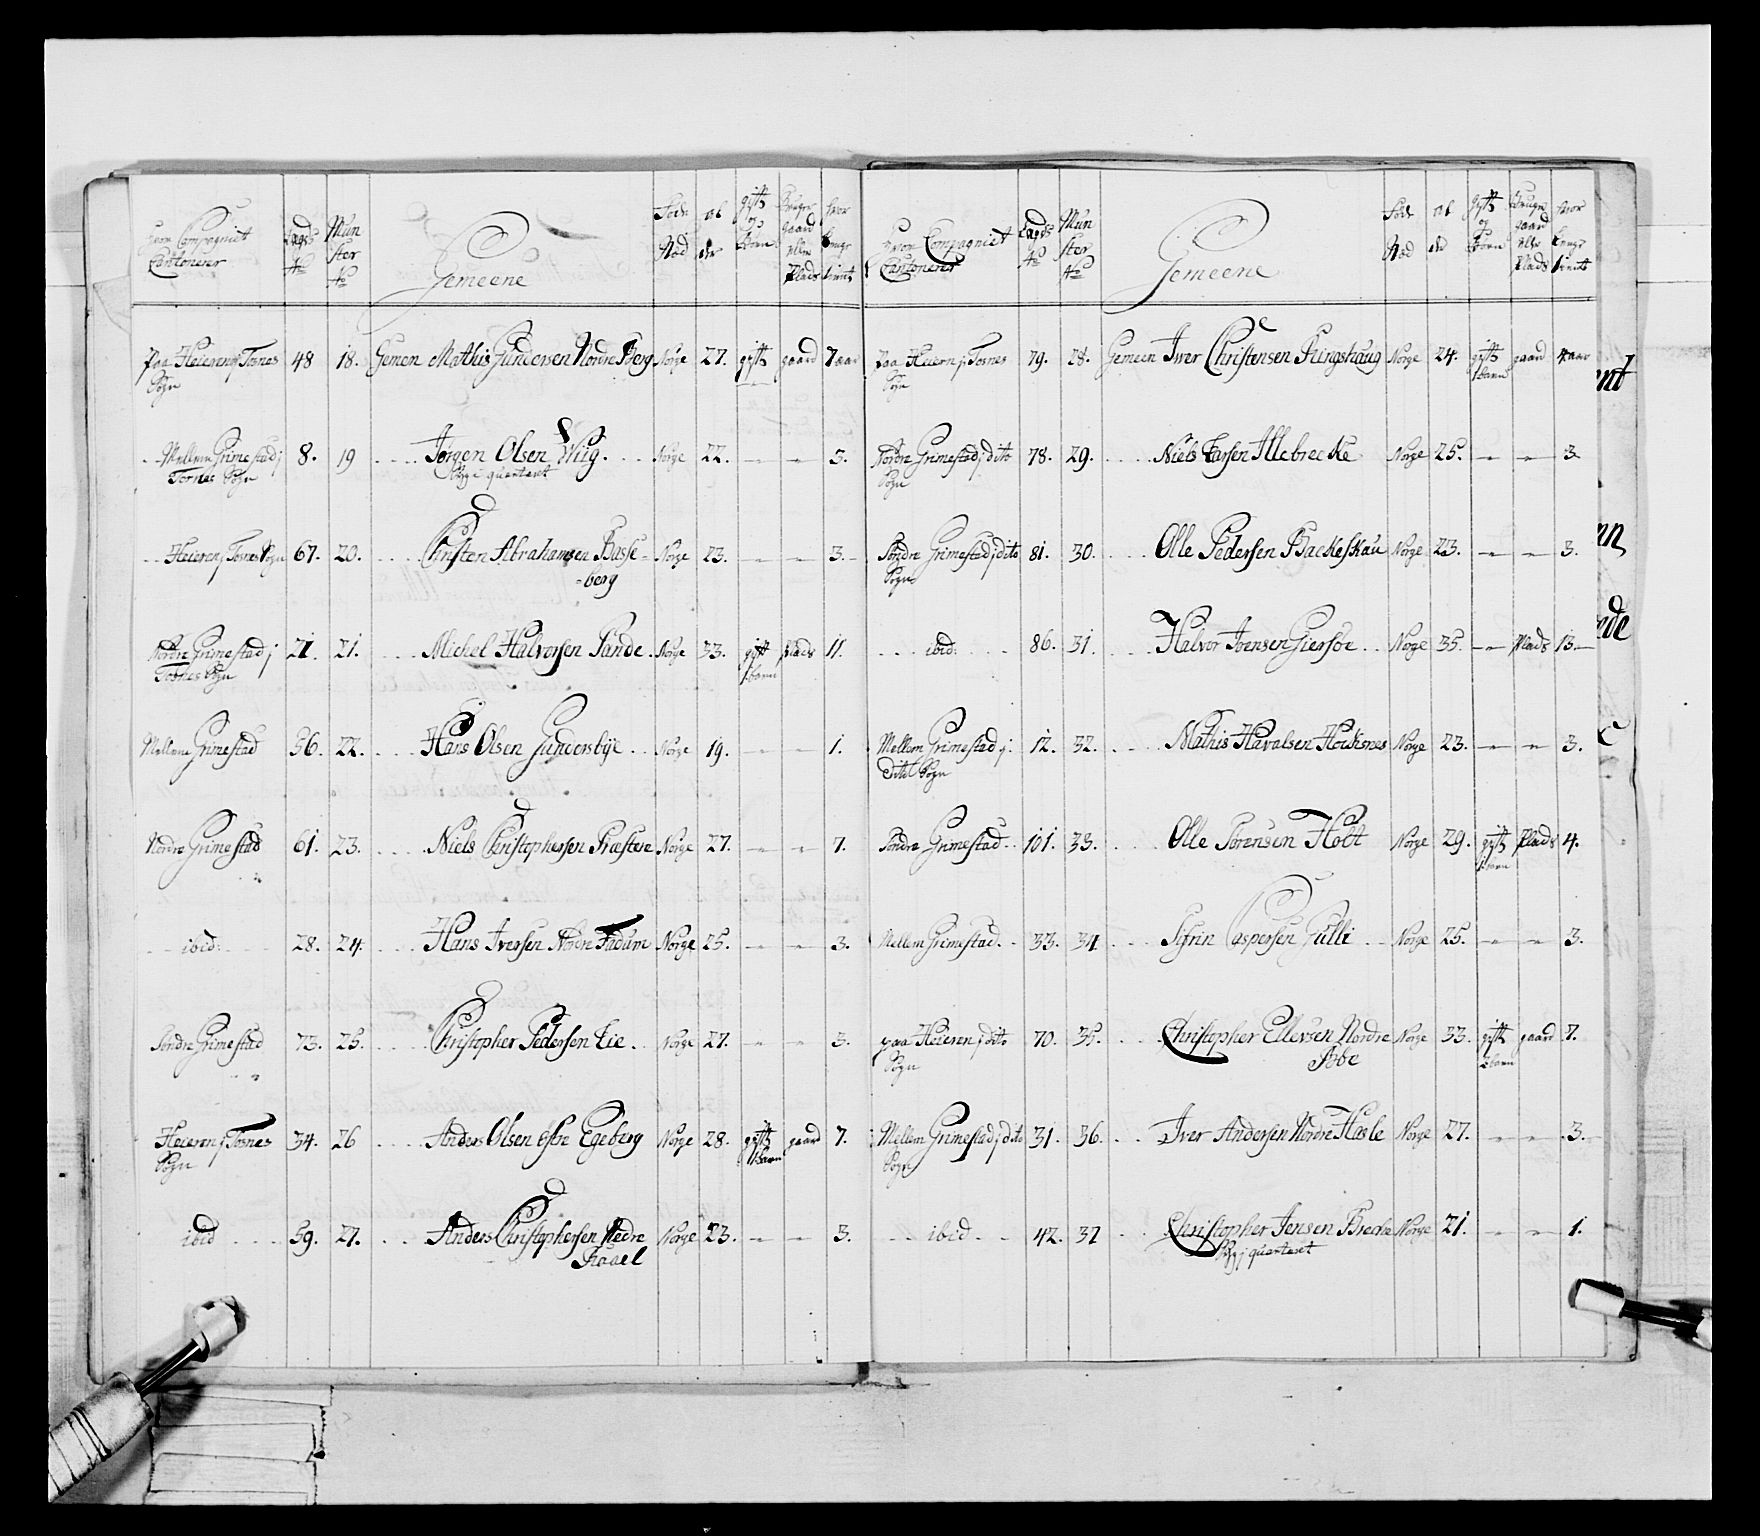 hvor Compagniet Cantonerer | Lægds No | Mun ster No | Gemeene | Føde Stæd | Al der | gift og Børn | Bruger gaard eller Plads | hvor lenge tient
paa Heieren j Tosnes Sogn | 48 | 18. | Gemen Mathis Gundersen Nordre Berg | Norge | 27. | gift | gaard | 7 aar
Mellem Grimestad j Tosnes Sogn | 8. | 19 | Jørgen Olsen Wiig. | Norge | 22. | - | - | 3.
Syg i quarteret
Heieren j Tosnes Sogn | 67. | 20. | Christen Abrahamsen Basse=berg | Norge | 23. | - | - | 3.
Nordre Grimestad j Tosnes Sogn | 21. | 21. | Michel Halvorsen Sande. | Norge | 33. | gift 1 barn | Plads | 11.
Mellem Grimestad | 56. | 22. | Hans Olsen Gundersbye | Norge | 19. | - | - | 1.
Nordre Grimestad | 61. | 23. | Niels Christophersen Præstere | Norge | 27. | - | - | 7.
ibid: | 28. | 24. | Hans Iversen Nordre Fadum | Norge | 25. | - | - | 3.
Søndre Grimestad | 73. | 25. | Christopher Pedersen Lie. | Norge | 27. | - | - | 3.
Heieren j Tosnes Sogn | 34. | 26 | Anders Olsen Østre Egeberg | Norge | 28. | gift 1 barn | gaard | 7.
ibid | 59. | 27. | Anders Christophersen Nedre | Norge | 23. | - | - | 3.
hvor Compagniet Cantonerer | Lægds No | Mun ster No | Gemeene | Føde Stæd | Al der | gift og Børn | Bruger gaard eller Plads | hvor lenge tient
paa Heiern j Tosnes Sogn | 79. | 28. | Gemeen Iver Christensen Ringshaug | Norge | 24. | gift 1 barn | gaard | 4 aar
Nordre Grimestad j dito Sogn | 78. | 29. | Niels Larsen Illebrecke | Norge | 25. | - | - | 3.
Søndre Grimestad j dito Sogn | 81. | 30. | Olle Pedersen Backeskau | Norge | 23. | - | - | 3.
ibid: | 86. | 31. | Halvor Joensen Giersøe | Norge | 35. | - | Plads | 13.
Mellem Grimestad j dito Sogn | 12. | 32. | Mathis Havalsen Horksnes | Norge | 23. | - | - | 3.
Søndre Grimestad | 101. | 33. | Olle Sørensen Holt | Norge | 29. | gift 1 barn | Plads | 4.
Mellem Grimestad. | 33. | 34 | Sifrin Caspersen Gulli | Norge | 25. | - | - | 3.
paa Heieren j dito Sogn | 70. | 35. | Christopher Ellevsen Nordre Bøe | Norge | 33. | gift 2 barn | gaard | 7.
Mellem Grimestad j dito Sogn | 31. | 36. | Iver Andersen Nordre Hasle | Norge | 27. | - | - | 3.
ibid | 42. | 37 | Christopher Jensen Brecke | Norge | 21. | - | - | 1.
Syg j quarteret